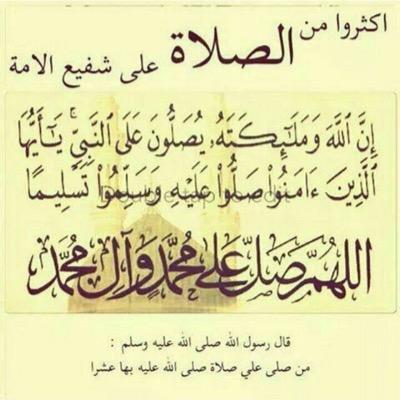 اكثروا من الصلاة على شفيع الامة
إِنَّ اللَّهَ وَمَلَٰٓئِكَتَهُۥ يُصَلُّونَ عَلَى النَّبِيِّ ۚ يَٰٓأَيُّهَا
الَّذِينَ ءَامَنُوا۟ صَلُّوا۟ عَلَيْهِ وَسَلِّمُوا۟ تَسْلِيمًا
Double tap to edit
اللهُمَّ صَلِّ عَلَى مُحَمَّدٍ وَآلِ مُحَمَّد
قال رسول الله صلى الله عليه وسلم :
من صلى علي صلاة صلى الله عليه بها عشرا